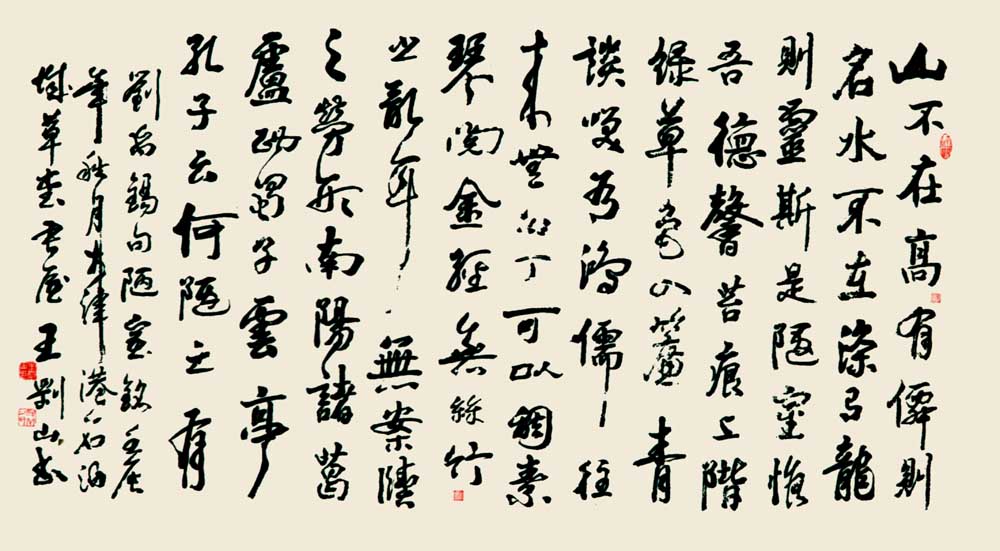 山不在高有僊則
名水不在深有龍
則靈斯是陋室惟
吾德馨苔痕上階
綠草色入簾青
談笑有鴻儒往
來無白丁可以調素
琴閱金經無絲竹
之亂耳無案牘
之勞形南陽諸葛
廬西蜀子雲亭
孔子云何陋之有
劉禹錫句陋室銘壬辰
年秋月天津港
城草書屋王山書